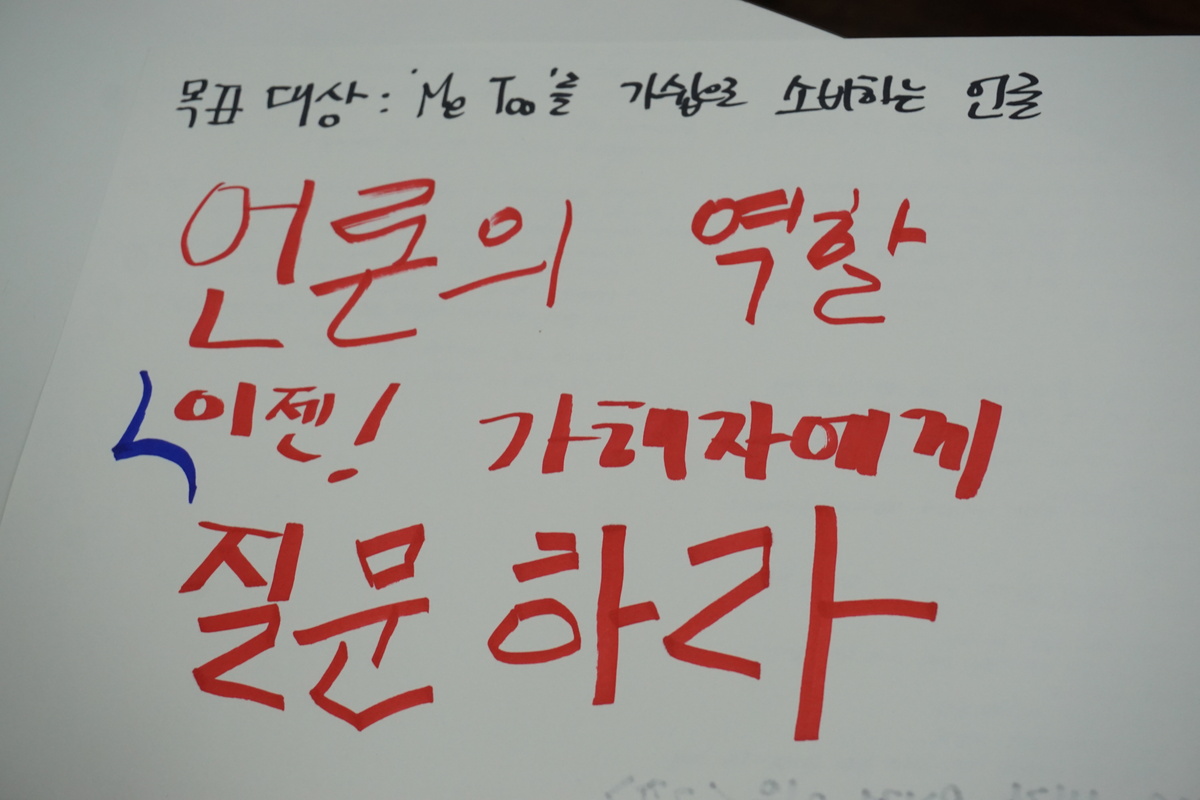 목표 대상: 'Me Too'를 가쉽으로 소비하는 언론
언론의 역할
이젠! 가해자에게
질문하라